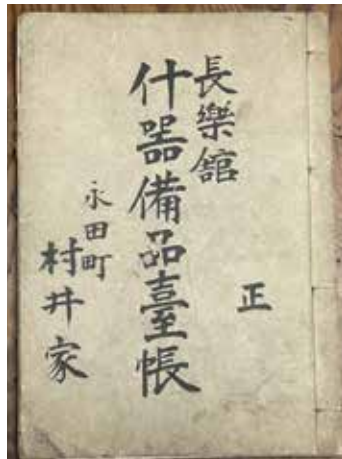 正
長樂舘
什器備品臺帳
永田町
村井家